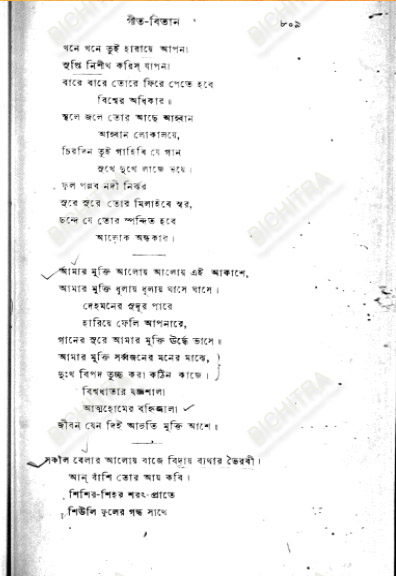 গীত-বিতান
৮০৯
খনে খনে তুই হারায়ে আপনা
সুপ্তি নিশীথ করিস যাপনা
বারে বারে তোরে ফিরে পেতে হবে
বিশ্বের অধিকার ॥
স্থলে জলে তোর আছে আহ্বান
আহ্বান লোকালয়ে,
চিরদিন তুই গাহিবি যে গান
সুখে দুখে লাজে ভয়ে।
ফুল পল্লব নদী নির্ঝর
সুরে সুরে তোর মিলাইবে স্বর,
ছন্দে যে তোর স্পন্দিত হবে
আলোক অন্ধকার।
আমার মুক্তি আলোয় আলোয় এই আকাশে,
আমার মুক্তি ধুলায় ধুলায় ঘাসে ঘাসে।
দেহমনের সুদূর পারে
হারিয়ে ফেলি আপনারে,
গানের সুরে আমার মুক্তি ঊর্দ্ধে ভাসে॥
আমার মুক্তি সর্ব্বজনের মনের মাঝে,
দুঃখ বিপদ তুচ্ছ করা কঠিন কাজে।
বিশ্বধাতার যজ্ঞশালা
আত্মহোমের বহ্নিজ্বালা
জীবন যেন দিই আহুতি মুক্তি আশে॥
সকাল বেলার আলোয় বাজে বিদায় ব্যথার ভৈরবী।
আন্ বাঁশি তোর আয় কবি।
শিশির-শিহর শরৎ-প্রাতে
শিউলি ফুলের গন্ধ সাথে
BICHITRA